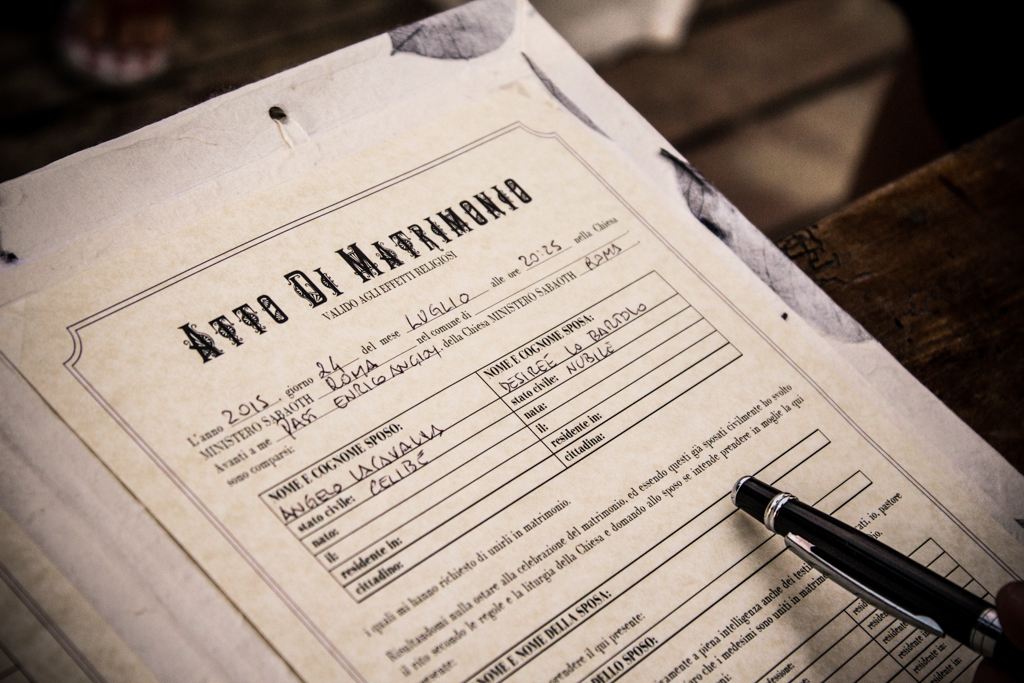 ATTO DI MATRIMONIO
VALIDO AGLI EFFETTI RELIGIOSI
L'anno 2015, giorno 24 del mese LUGLIO alle ore 20:25 nella Chiesa
MINISTERO SABAOTH ROMA nel comune di ROMA
Avanti a me PAS. ENRICO della Chiesa MINISTERO SABAOTH
sono comparsi:
NOME E COGNOME SPOSO:
ANGELO
stato civile: CELIBE
nato:
il:
residente in:
cittadino:
NOME E COGNOME SPOSA:
DESIREE LO BARTOLO
stato civile: NUBILE
nata:
il:
residente in:
cittadina:
i quali mi hanno richiesto di unirli in matrimonio.
Risultandomi nulla ostare alla celebrazione del matrimonio, ed essendo questi già sposati civilmente ho svolto
il rito secondo le regole e la liturgia della Chiesa e domando allo sposo se intende prendere in moglie la qui
presente:
NOME DELLA SPOSA:
prendere il qui presente:
DELLO SPOSO:
io, pastore
piena intelligenza anche dei
che i medesimi sono uniti in matrimonio
residente
residente
residente